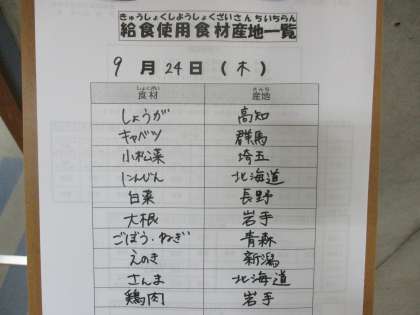 きゅうしょくしようしょくざいさんちいちらん
給食使用食材産地一覧
9月24日(木)
しょくざい さんち
食材 産地
しょうが 高知
キャベツ 群馬
小松菜 埼玉
にんじん 北海道
白菜 長野
大根 岩手
ごぼう・ねぎ 青森
えのき 新潟
さんま 北海道
鶏肉 岩手